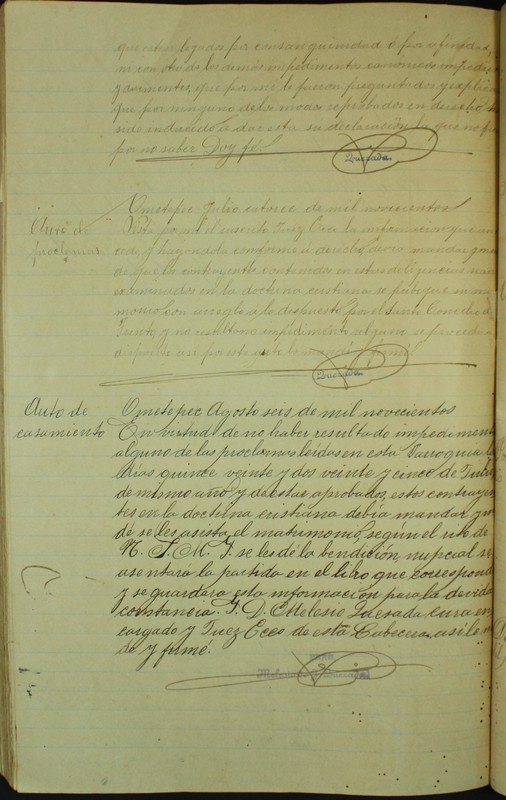 que esten ligados por consanguinidad ó por afinidad,
ni con otro de los demas impedimentos canonicos impedien
y dirimentes, que por mi le fueron preguntados y explica
que por ninguno de los modos reprobados en derecho ha
sido inducido á dar esta su declaración la que no fir
por no saber. Doy fé.
Quesada
Auto de
proclamas
Ometepec Julio catorce de mil novecientos
Vista por mi el suscrito Juez Ecco la información que an
cede y hayandola conforme á derecho devia mandar y ma
dé que los contrayentes contenidos en estas diligencias sean
examinados en la doctrina cristiana se publique su ma
monio con arreglo á lo dispuesto por el Santo Concilio d
Trento, y no resultando impedimento alguno se proceda a
dispuesto asi por este auto lo mandé y firmé
Quesada
Auto de
casamiento
Ometepec Agosto seis de mil novecientos
En virtud de no haber resultado impedimento
alguno de las proclamas leidas en esta Parroquia l
dias quince veinte y dos veinte y cinco de Julio
de mismo año y de estar aprobados estos contraye
tes en la doctrina cristiana debia mandar y m
dé se les asista el matrimonio, según el rito de
N. S. M. I. se les dé la bendición nupcial se
asentará la partida en el libro que correspond
y se guardará esta información para la devida
constancia. I. D. Melesio Quesada cura en
cargado y Juez Ecco de esta Cabecera asi lo m
dé y firmé.